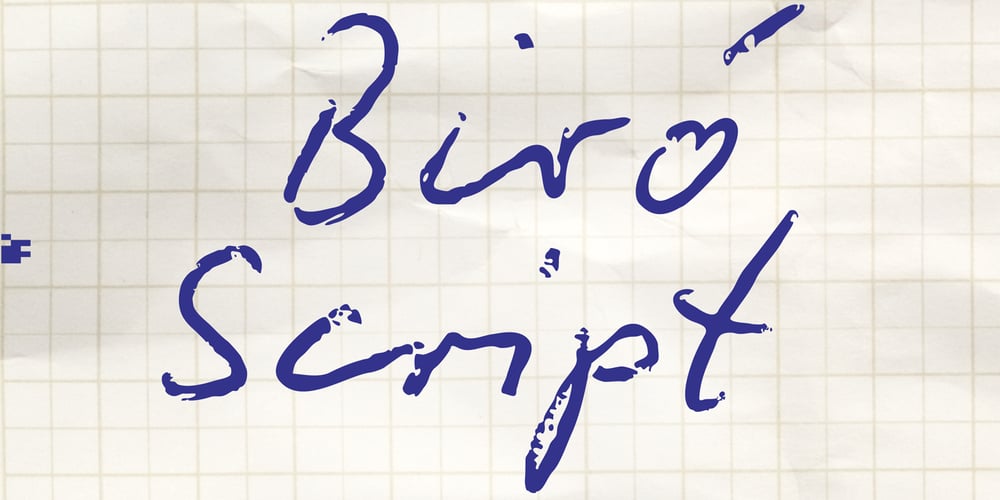 Biró
Script